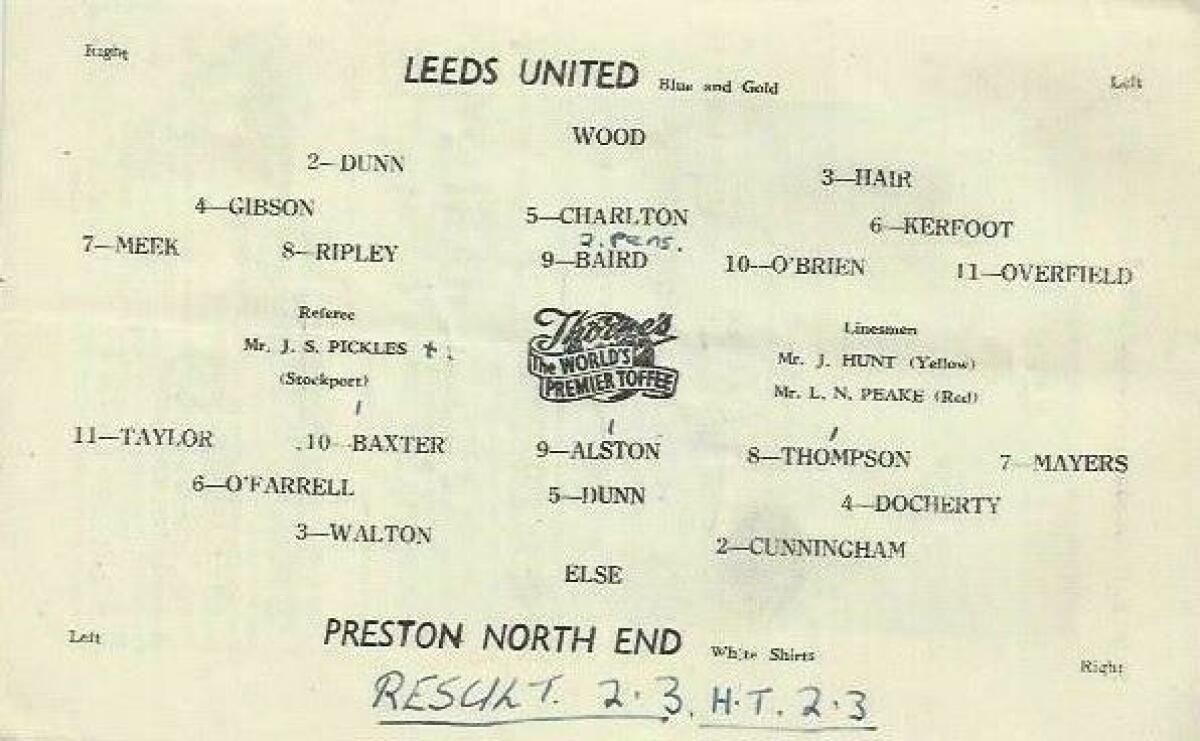 Right
LEEDS UNITED Blue and Gold
Left
WOOD
2—DUNN
3—HAIR
4—GIBSON
5—CHARLTON
6—KERFOOT
2. Pens.
7—MEEK
8—RIPLEY
9—BAIRD
10—O'BRIEN
11—OVERFIELD
Referee
Mr. J. S. PICKLES
(Stockport)
Thorne's
The WORLD'S
PREMIER TOFFEE
Linesmen
Mr. J. HUNT (Yellow)
Mr. L. N. PEAKE (Red)
11—TAYLOR
10—BAXTER
9—ALSTON
8—THOMPSON
7—MAYERS
6—O'FARRELL
5—DUNN
4—DOCHERTY
3—WALTON
2—CUNNINGHAM
ELSE
Left
PRESTON NORTH END White Shirts
Right
RESULT. 2.3. H.T. 2.3